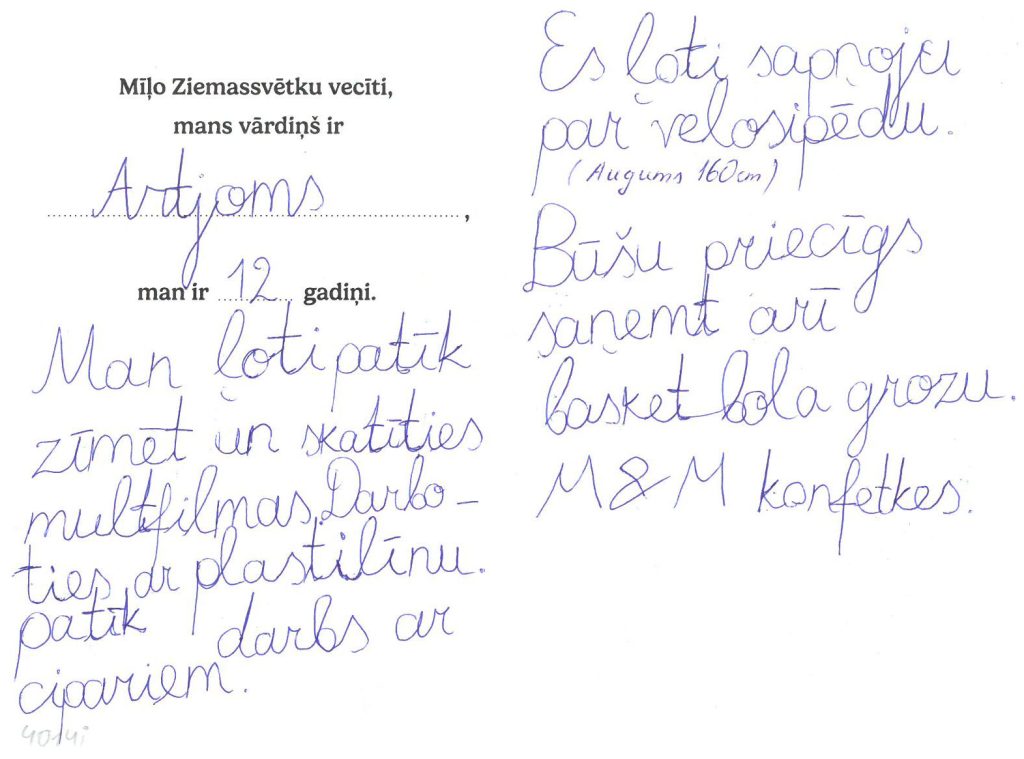 Mīļo Ziemassvētku vecīti,
mans vārdiņš ir
Artjoms,
man ir 12 gadiņi.
Man ļoti patīk
zīmēt un skatīties
multfilmas. Darbo-
ties ar plastilīnu.
patīk darbs ar
cipariem.
Es ļoti sapņoju
par velosipēdu.
(Augums 160cm)
Būšu priecīgs
saņemt arī
basket bola grozu.
M&M konfetkes.